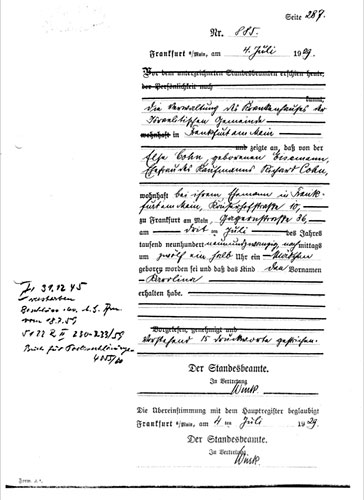 Seite 287.
Nr. 885.
Frankfurt a/Main, am 4. Juli 1929
Vor dem unterzeichneten Standesbeamten erschien heute,
der Persönlichkeit nach
kannt,
die Verwaltung des Krankenhauses der
Israelitischen Gemeinde
wohnhaft in Frankfurt am Main
und zeigte an, daß von der
Else Cohn geborenen
Ehefrau des Kaufmanns Richard Cohn,
wohnhaft bei ihrem Ehemann in Frank-
furt am Main, 10,
zu Frankfurt am Main, Gagernstraße 36,
am drei ten Juli des Jahres
tausend neunhundert neunundzwanzig nachmittags
um zwölf ein halb Uhr ein Mädchen
geboren worden sei und daß das Kind den Vornamen
Karolina
erhalten habe.
Vorgelesen, genehmigt und
Vorstehend 15 Druckworte gestrichen.
Der Standesbeamte.
In Vertretung
Die Übereinstimmung mit dem Hauptregister beglaubigt
Frankfurt a/Main, am 4. ten Juli 1929
Der Standesbeamte.
In Vertretung
31.12.45
verstorben
Beschluss des A.G.
vom 18.7.59
51 22 II 230-233/59
Buch für Todeserklärungen
Form. A 1.